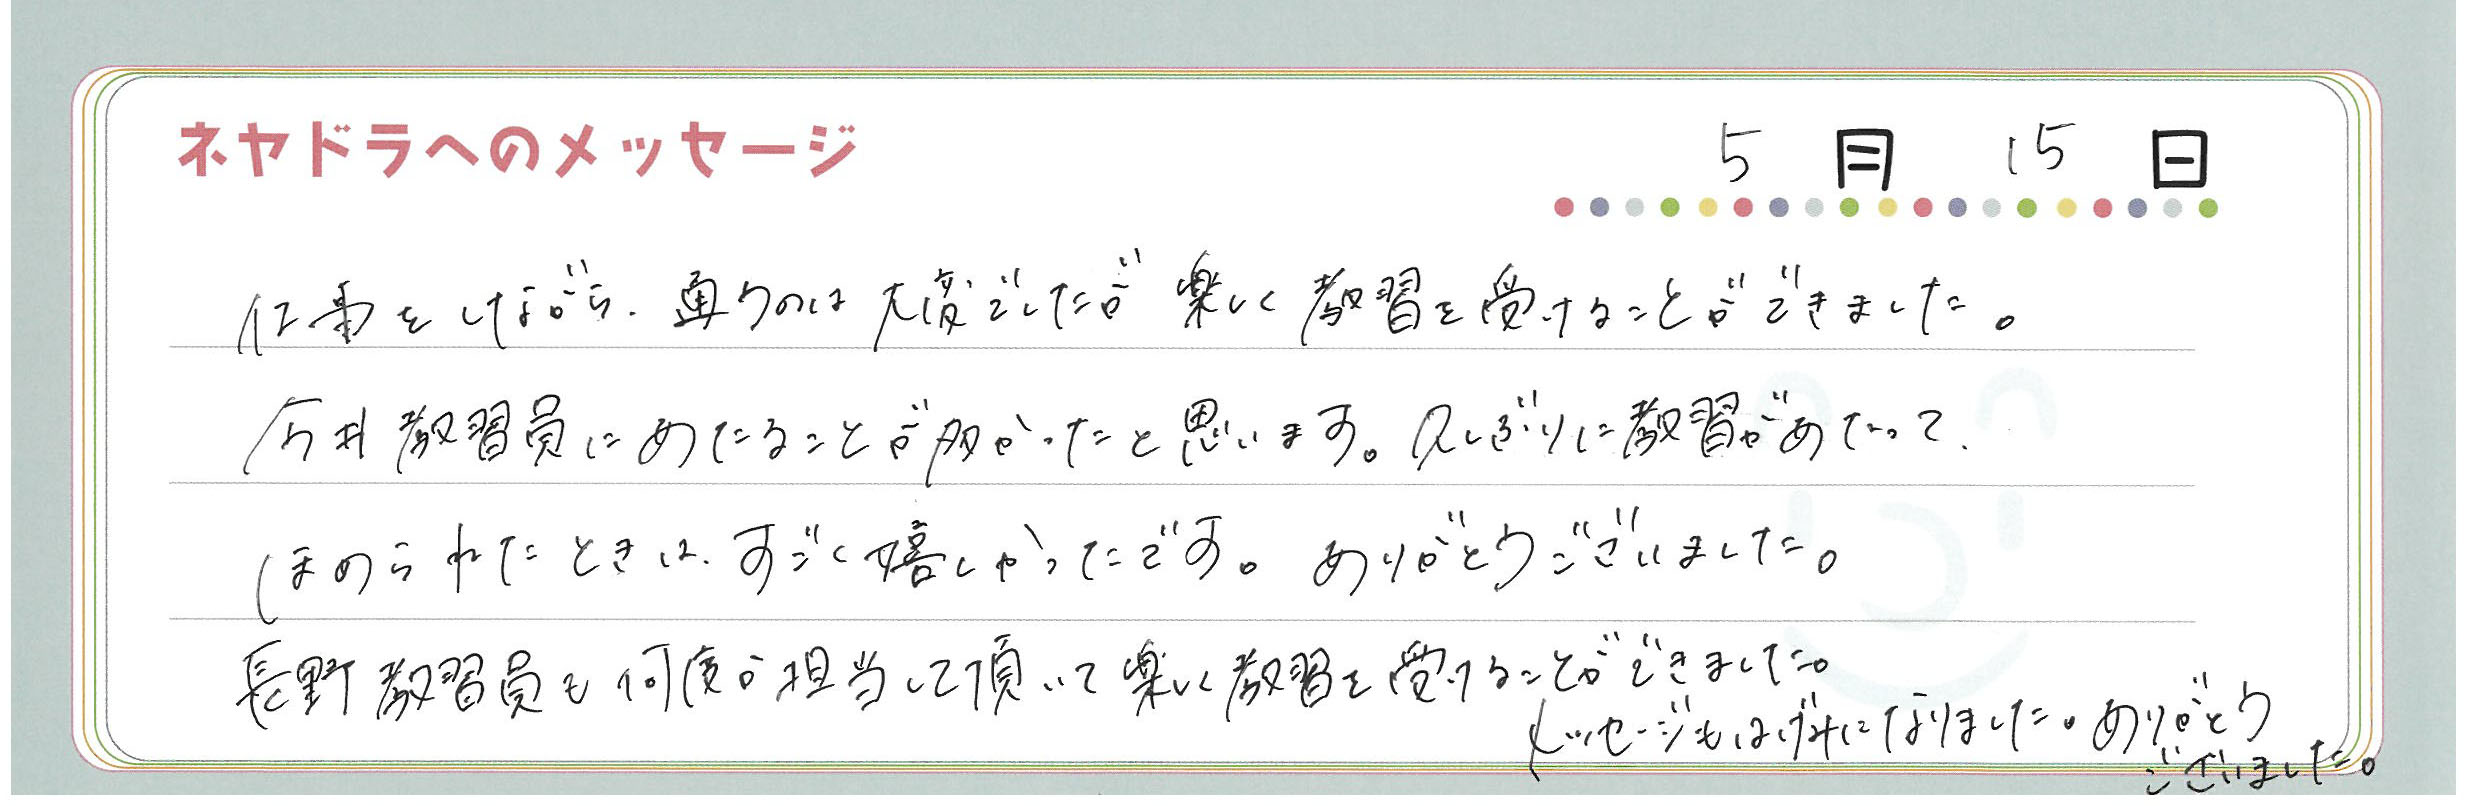 ネヤドラへのメッセージ
5月15日
仕事をしながら、通うのは大変でしたが楽しく教習を受けることができました。
石井教習員にあたることが多かったと思います。久しぶりに教習があたって、
ほめられたときは、すごく嬉しかったです。ありがとうございました。
長野教習員も何度か担当して頂いて楽しく教習を受けることができました。
メッセージもはげみになりました。ありがとう
ございました。